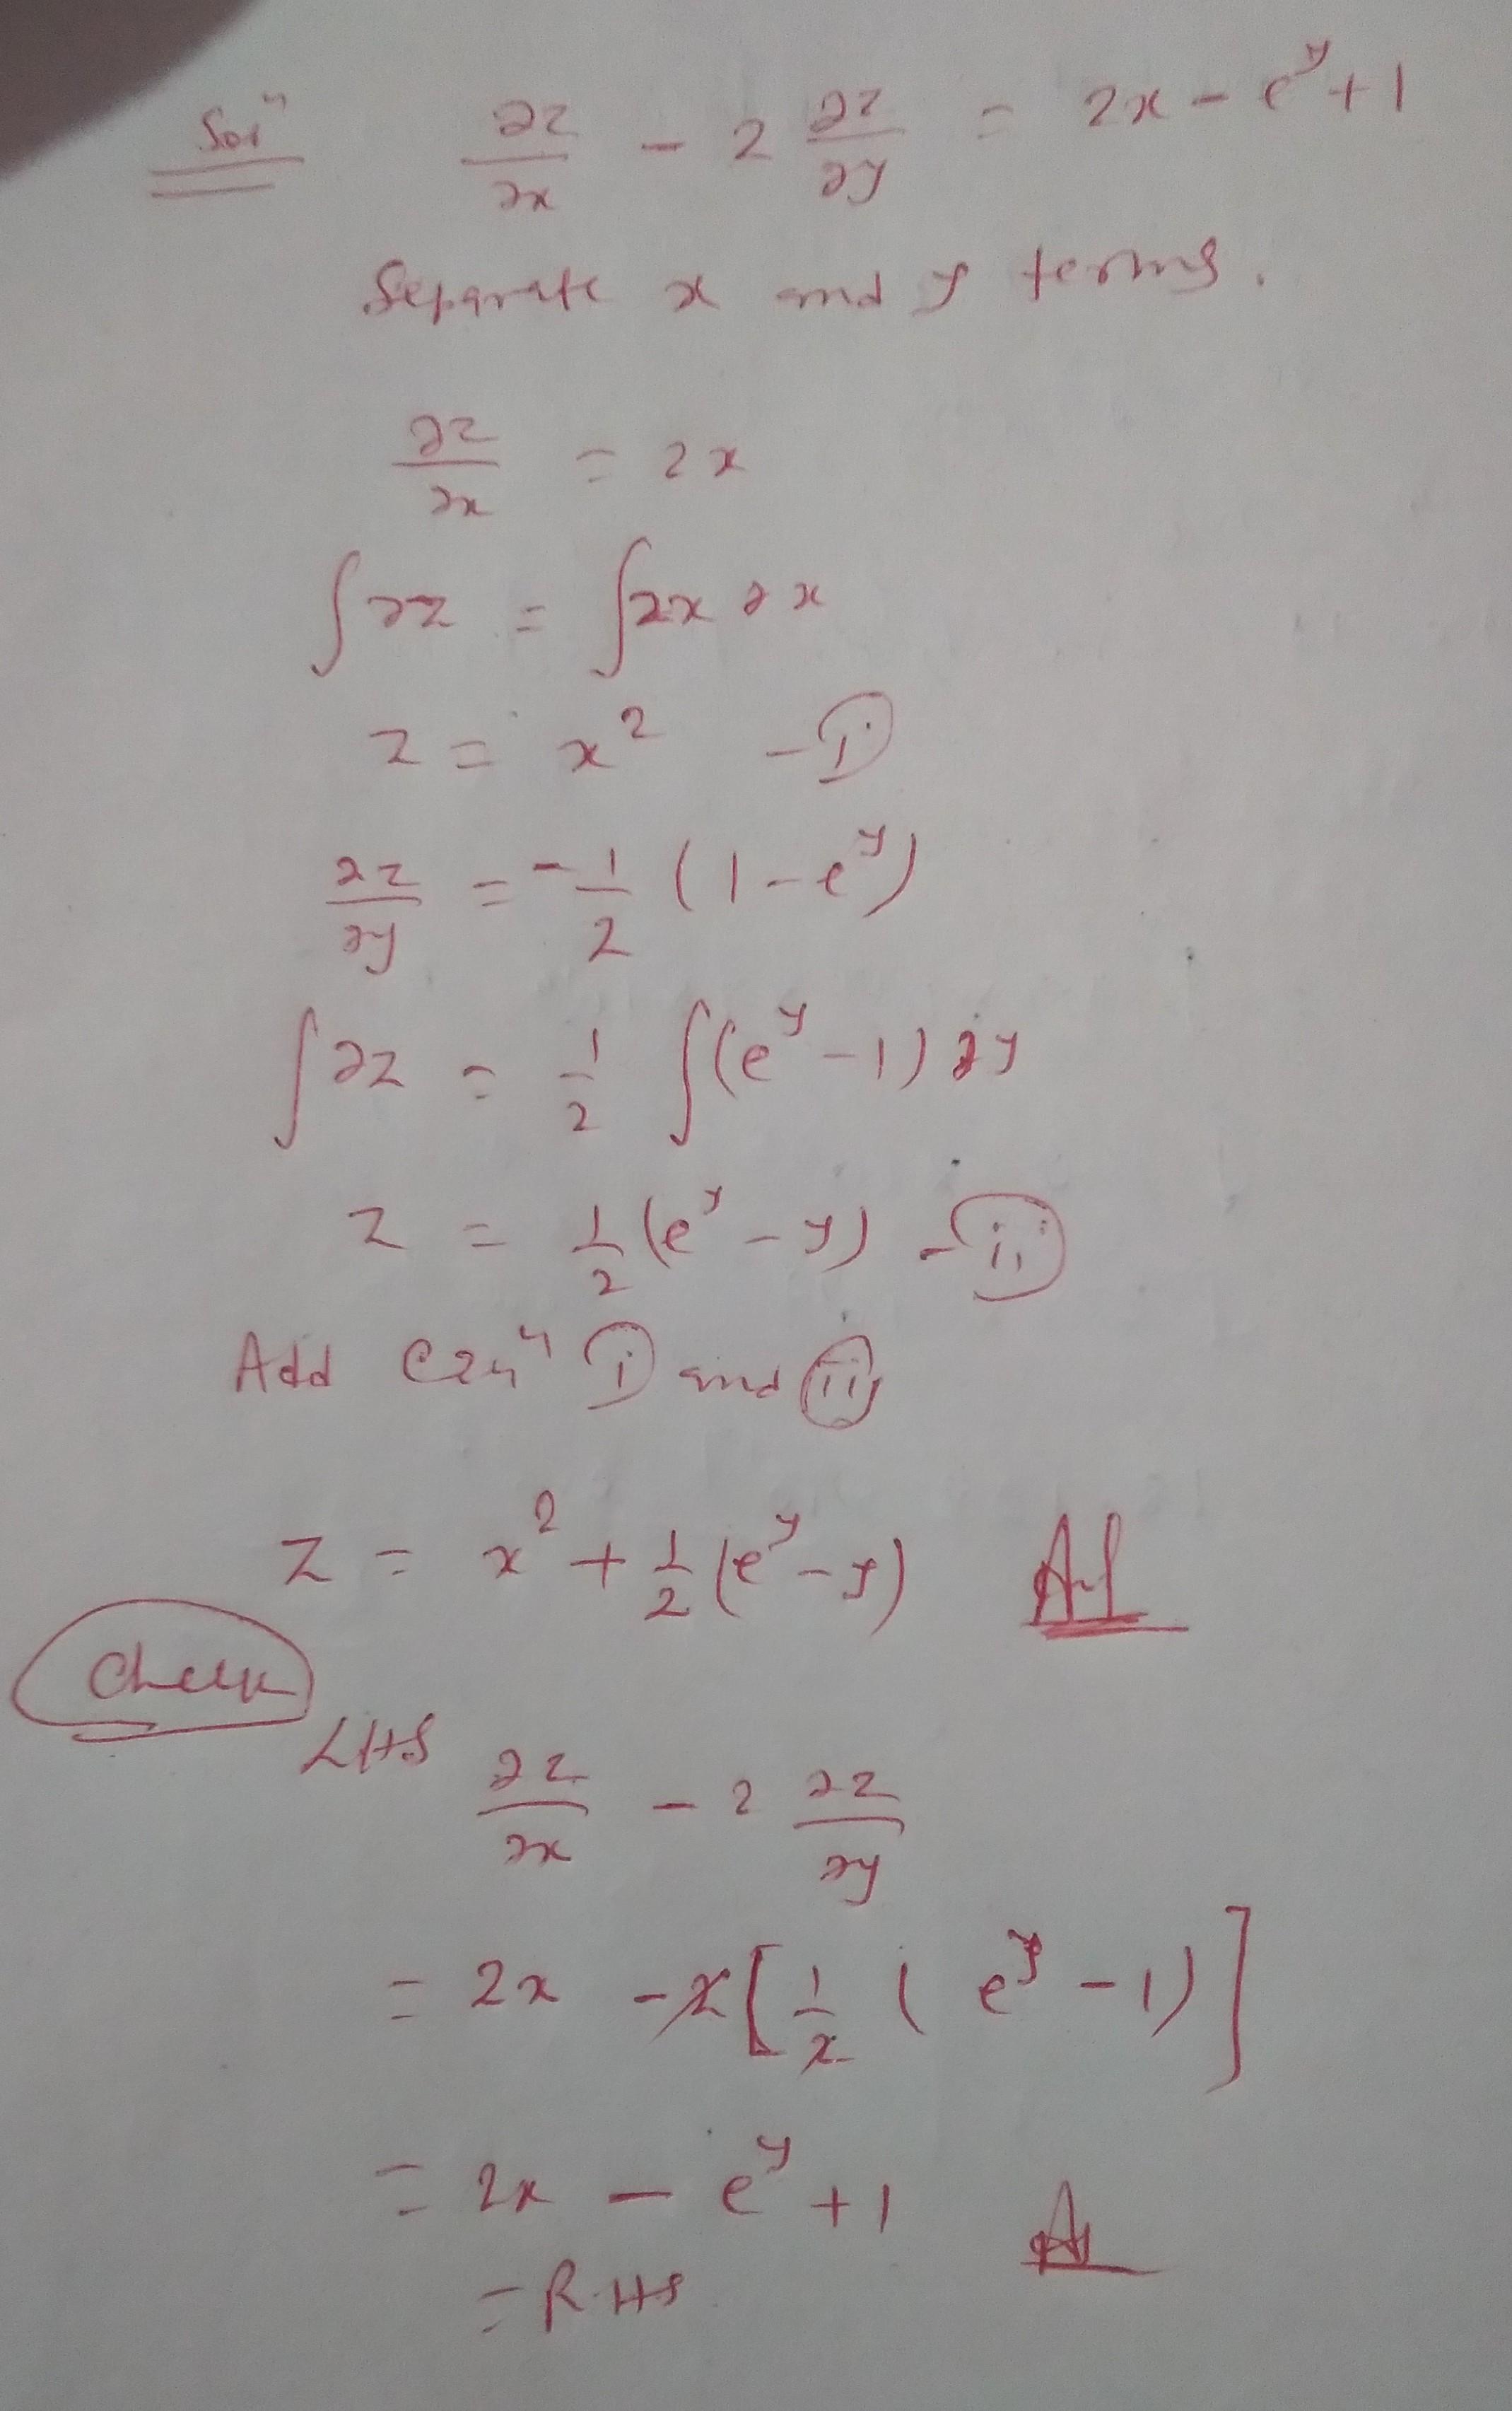 Solⁿ ∂z/∂x - 2 ∂z/∂y = 2x - e^y + 1
Separate x and y terms.
∂z/∂x = 2x
∫∂z = ∫2x ∂x
z = x² - (i)
∂z/∂y = -1/2 (1 - e^y)
∫∂z = 1/2 ∫(e^y - 1) ∂y
z = 1/2 (e^y - y) - (ii)
Add eqnⁿ (i) and (ii)
z = x² + 1/2 (e^y - y) Ans
Check
LHS ∂z/∂x - 2 ∂z/∂y
= 2x - 2[1/2 (e^y - 1)]
= 2x - e^y + 1
= R.HS